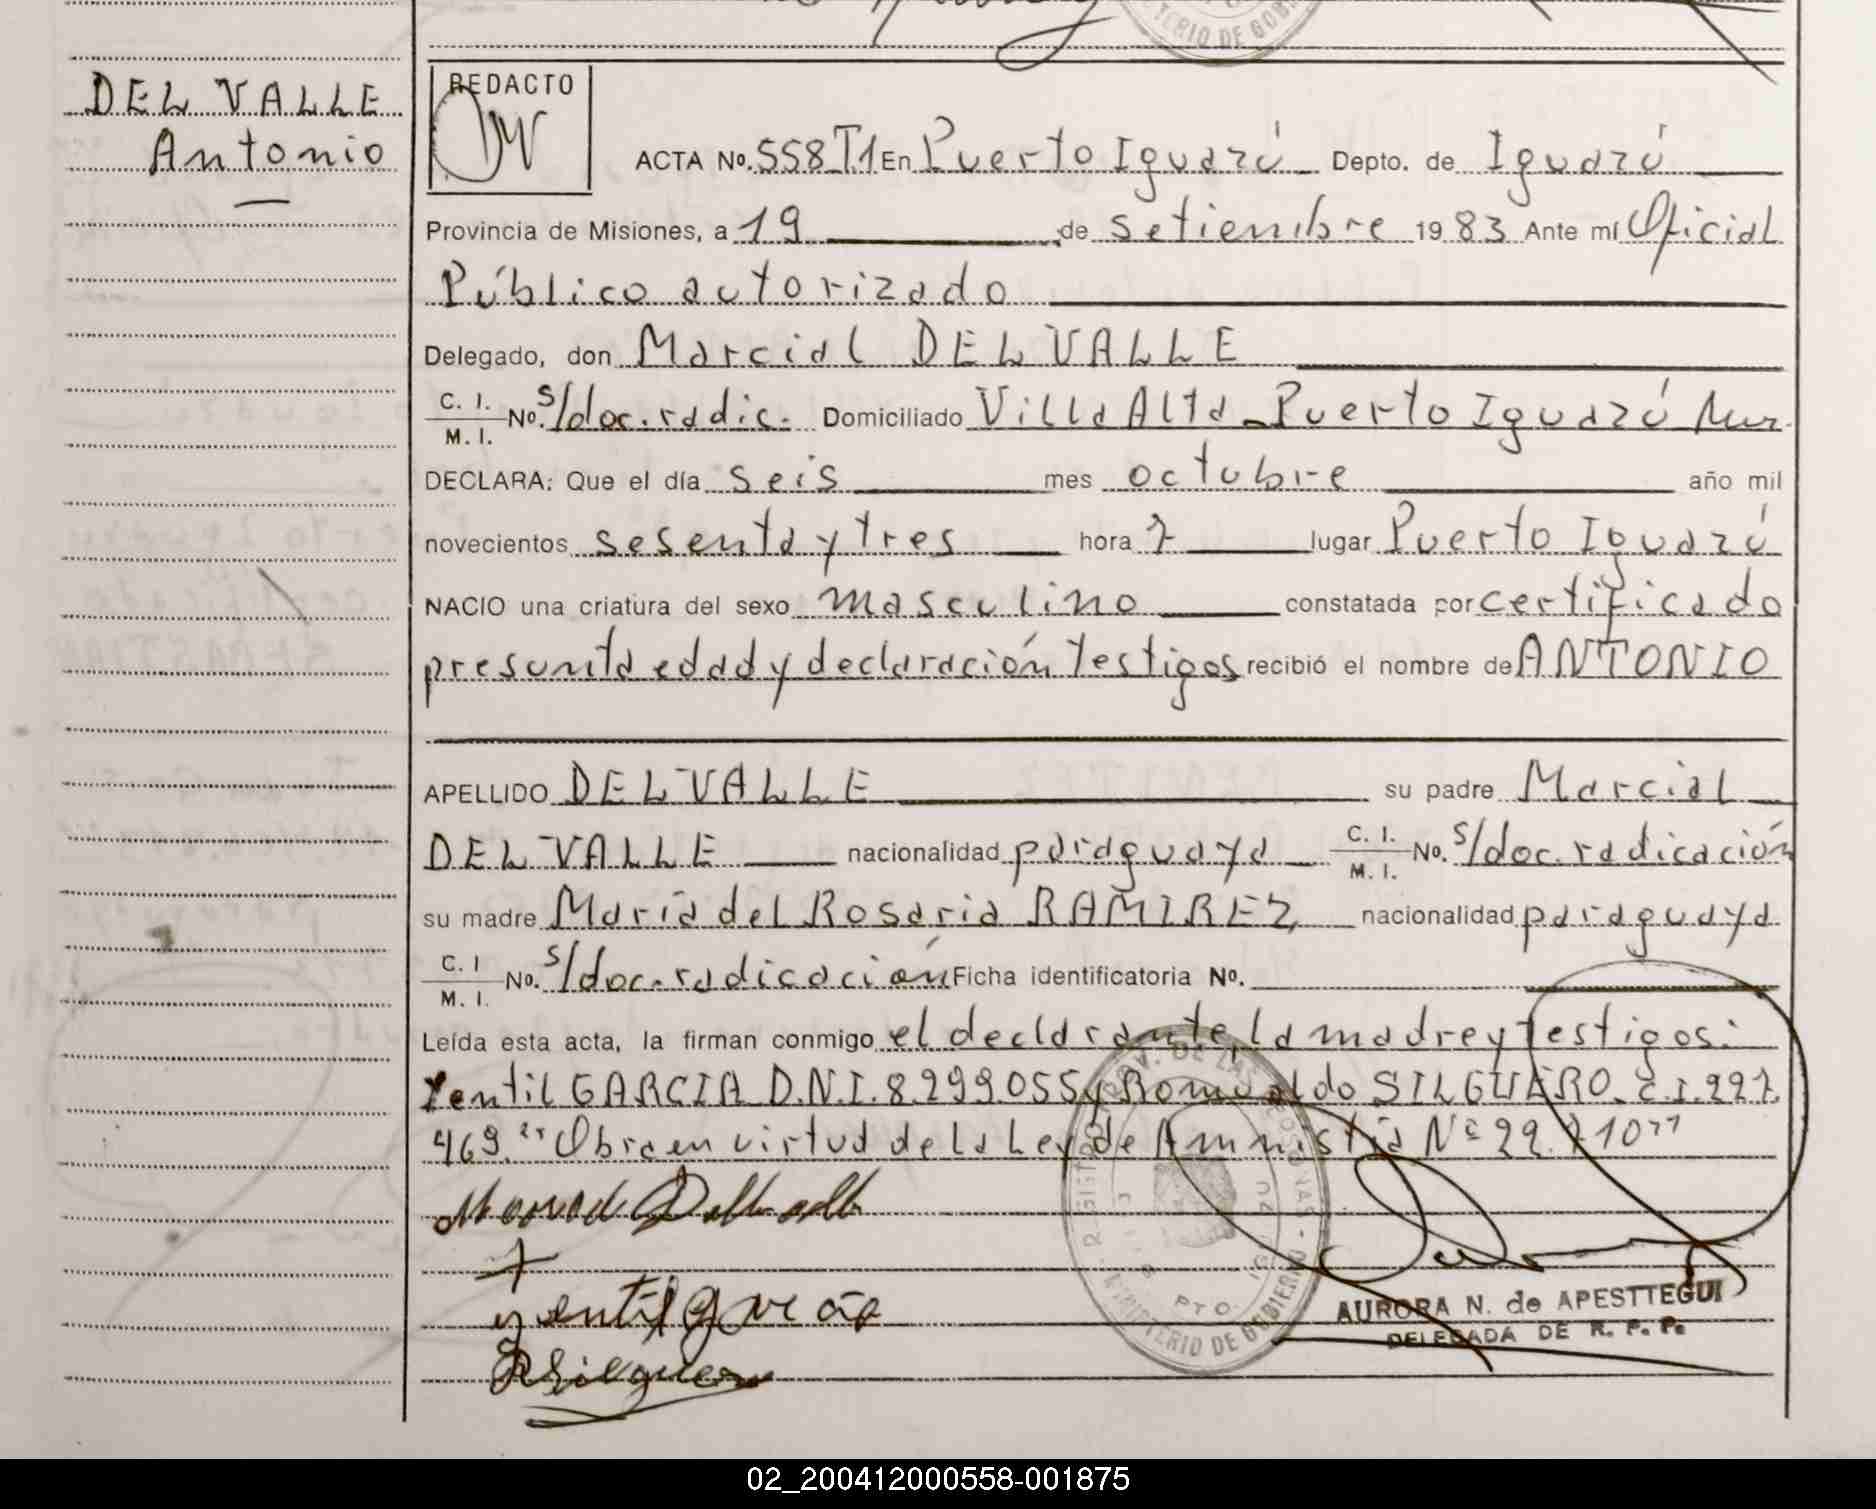 DEL VALLE
Antonio
REDACTO
ACTA No. 558 T1 En Puerto Iguazú Depto. de Iguazú
Provincia de Misiones, a 19 de setiembre 1983 Ante mí Oficial
Público autorizado
Delegado, don Marcial DEL VALLE
C. I.
M. I. No. s/doc. radic. Domiciliado Villa Alta - Puerto Iguazú
DECLARA: Que el día seis mes octubre año mil
novecientos sesenta y tres hora 7 lugar Puerto Iguazú
NACIO una criatura del sexo masculino constatada por certificado
presunta edad y declaración testigos recibió el nombre de ANTONIO
APELLIDO DEL VALLE su padre Marcial
DEL VALLE nacionalidad paraguaya C. I. M. I. No. s/doc. radicación
su madre María del Rosario RAMIREZ nacionalidad paraguaya
C. I M. I. No. s/doc. radicación Ficha identificatoria No.
Leída esta acta, la firman conmigo el declarante, la madre y testigos:
Yentil GARCIA D.N.I. 8.299.055 y Romualdo SILGUERO. C.I. 227.
469. "Obra en virtud de la Ley de Amnistía Nº 22.710"
yentil garcia
RSilguero
AURORA N. de APESTTEGUI
DELEGADA DE R. P. P.
02_200412000558-001875